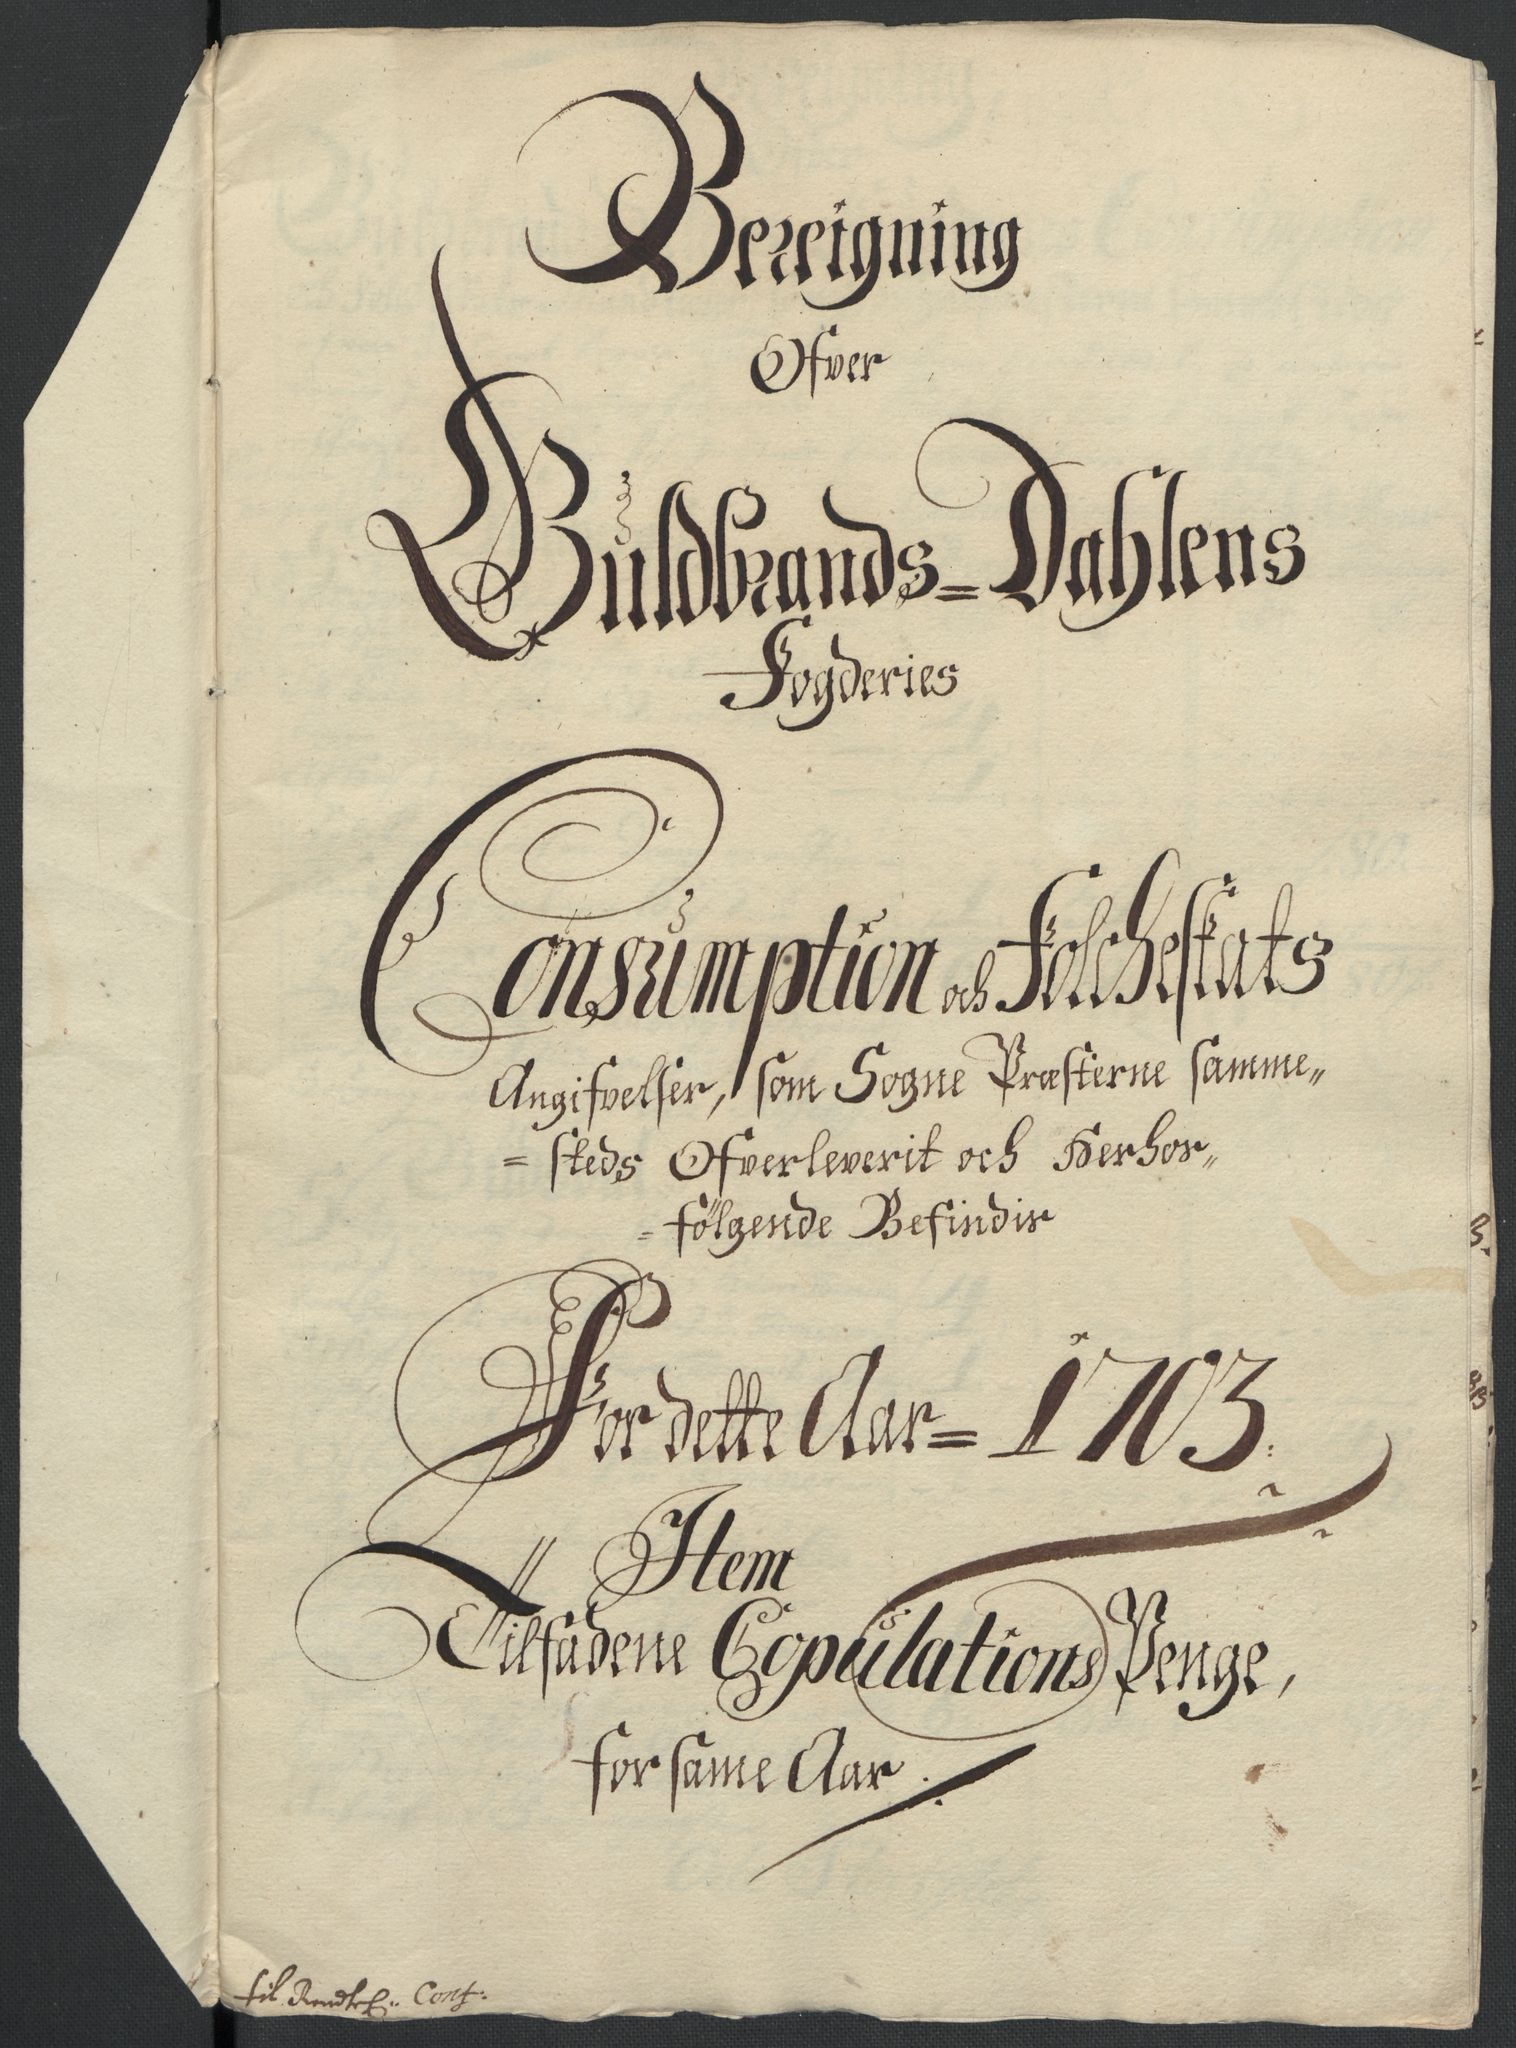 Bereigning
Ofver
Guldbrands= Dahlens
Fogderies
Consumption och Folcheskats
Angifvelser, som Sogne Præsterne samme„
= steds Ofverleverit och Herhor„
= følgende Befindir
For dette Aar= 1703.
Item
Tilfadene Copulations Penge,
for same Aar
til Rendtek: Cont: